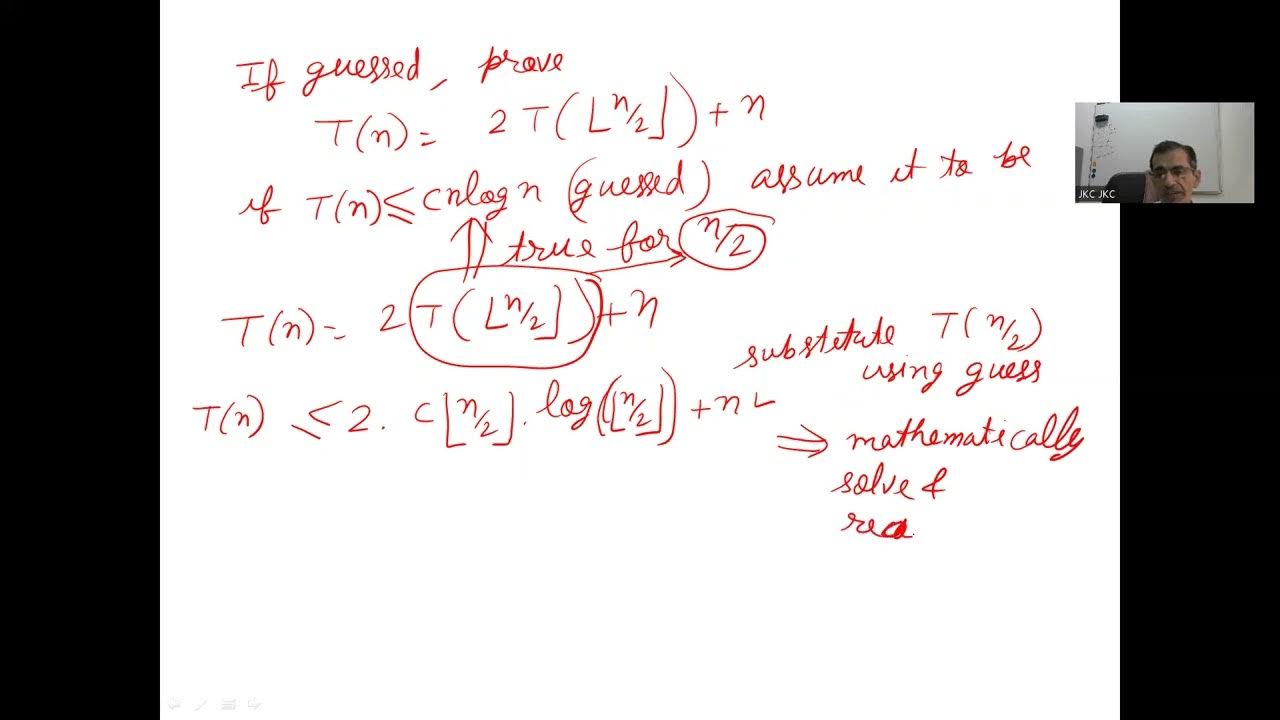 If guessed, prove
T(n) = 2 T(⌊n/2⌋) + n
if T(n) ≤ cnlog n (guessed) assume it to be
true for n/2
T(n) = 2 T(⌊n/2⌋) + n
substitute T(n/2)
using guess
T(n) ≤ 2. C⌊n/2⌋. log(⌊n/2⌋) + n
⇒ mathematically
solve &
rea
JKC JKC